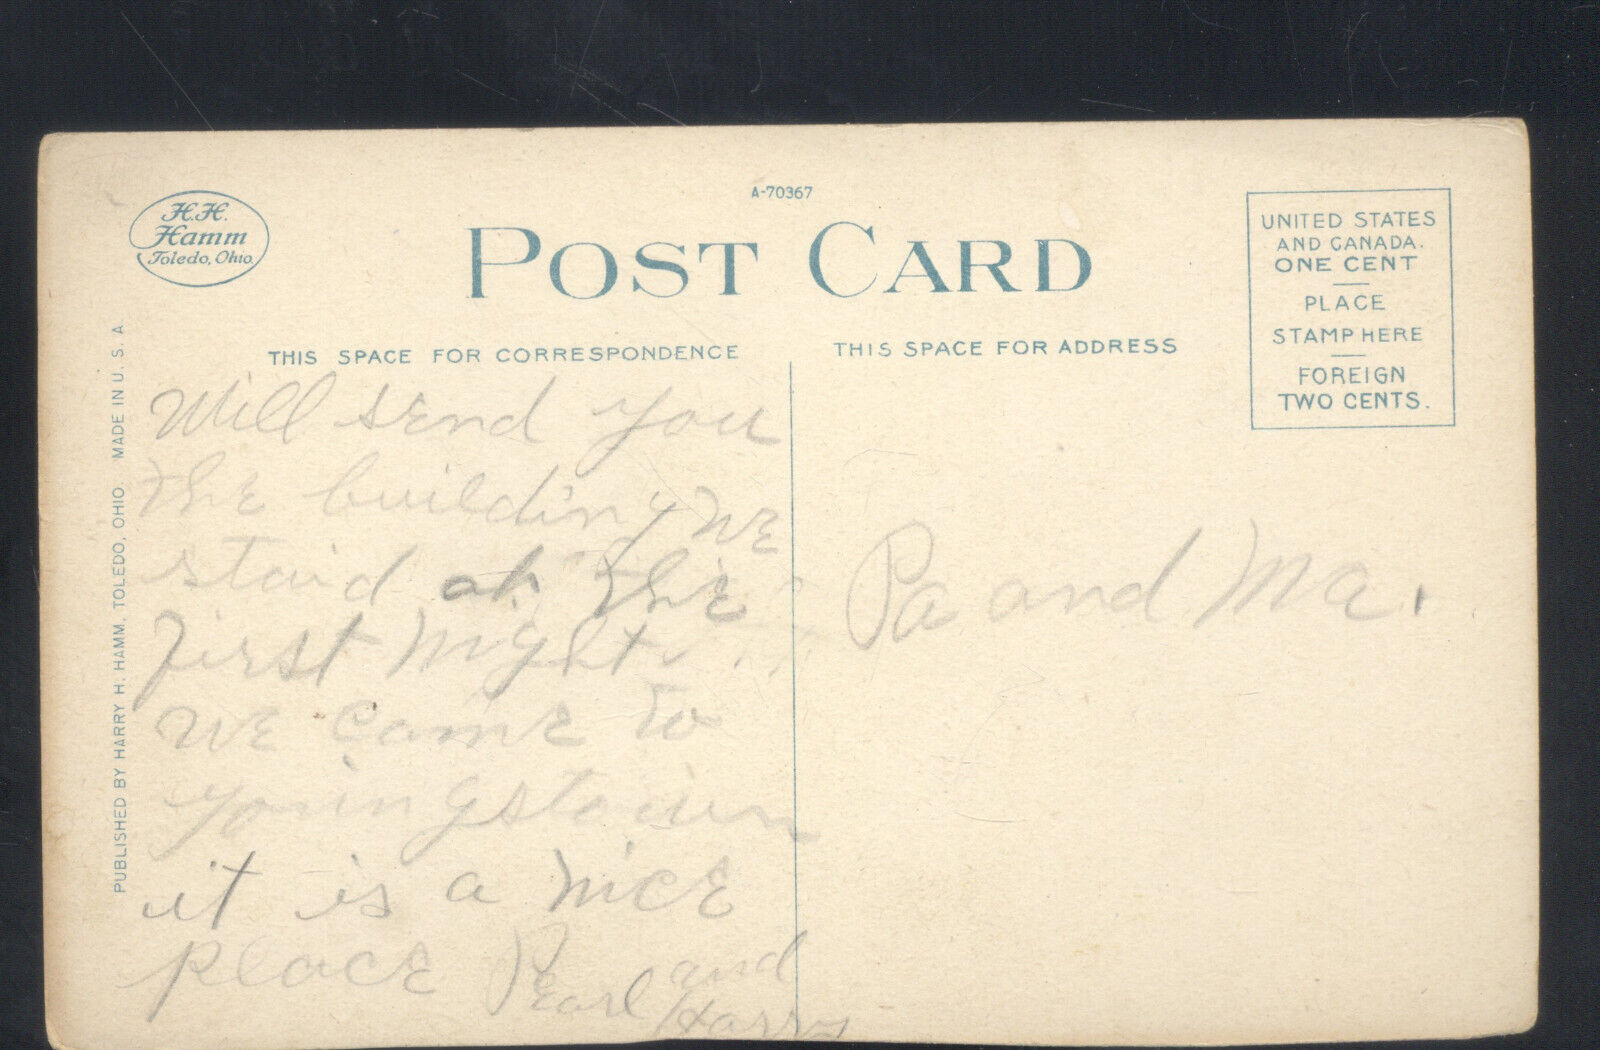 H.H.
Hamm
Toledo, Ohio
A-70367
POST CARD
UNITED STATES
AND CANADA.
ONE CENT
PLACE
STAMP HERE
FOREIGN
TWO CENTS.
THIS SPACE FOR CORRESPONDENCE
THIS SPACE FOR ADDRESS
PUBLISHED BY HARRY H. HAMM. TOLEDO, OHIO MADE IN U. S. A
Will send you
the building we
staid at the
First Night.
we came to
youngstown
it is a nice
place Pearl and
Harry
Pa and Ma.